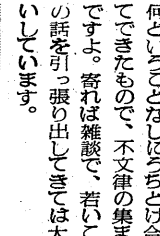 何ということなしにうちとけ会
てできたもので、不文律の集ま
ですよ。寄れば雑談で、若いこ
の話を引っ張り出してきては大
いしています。